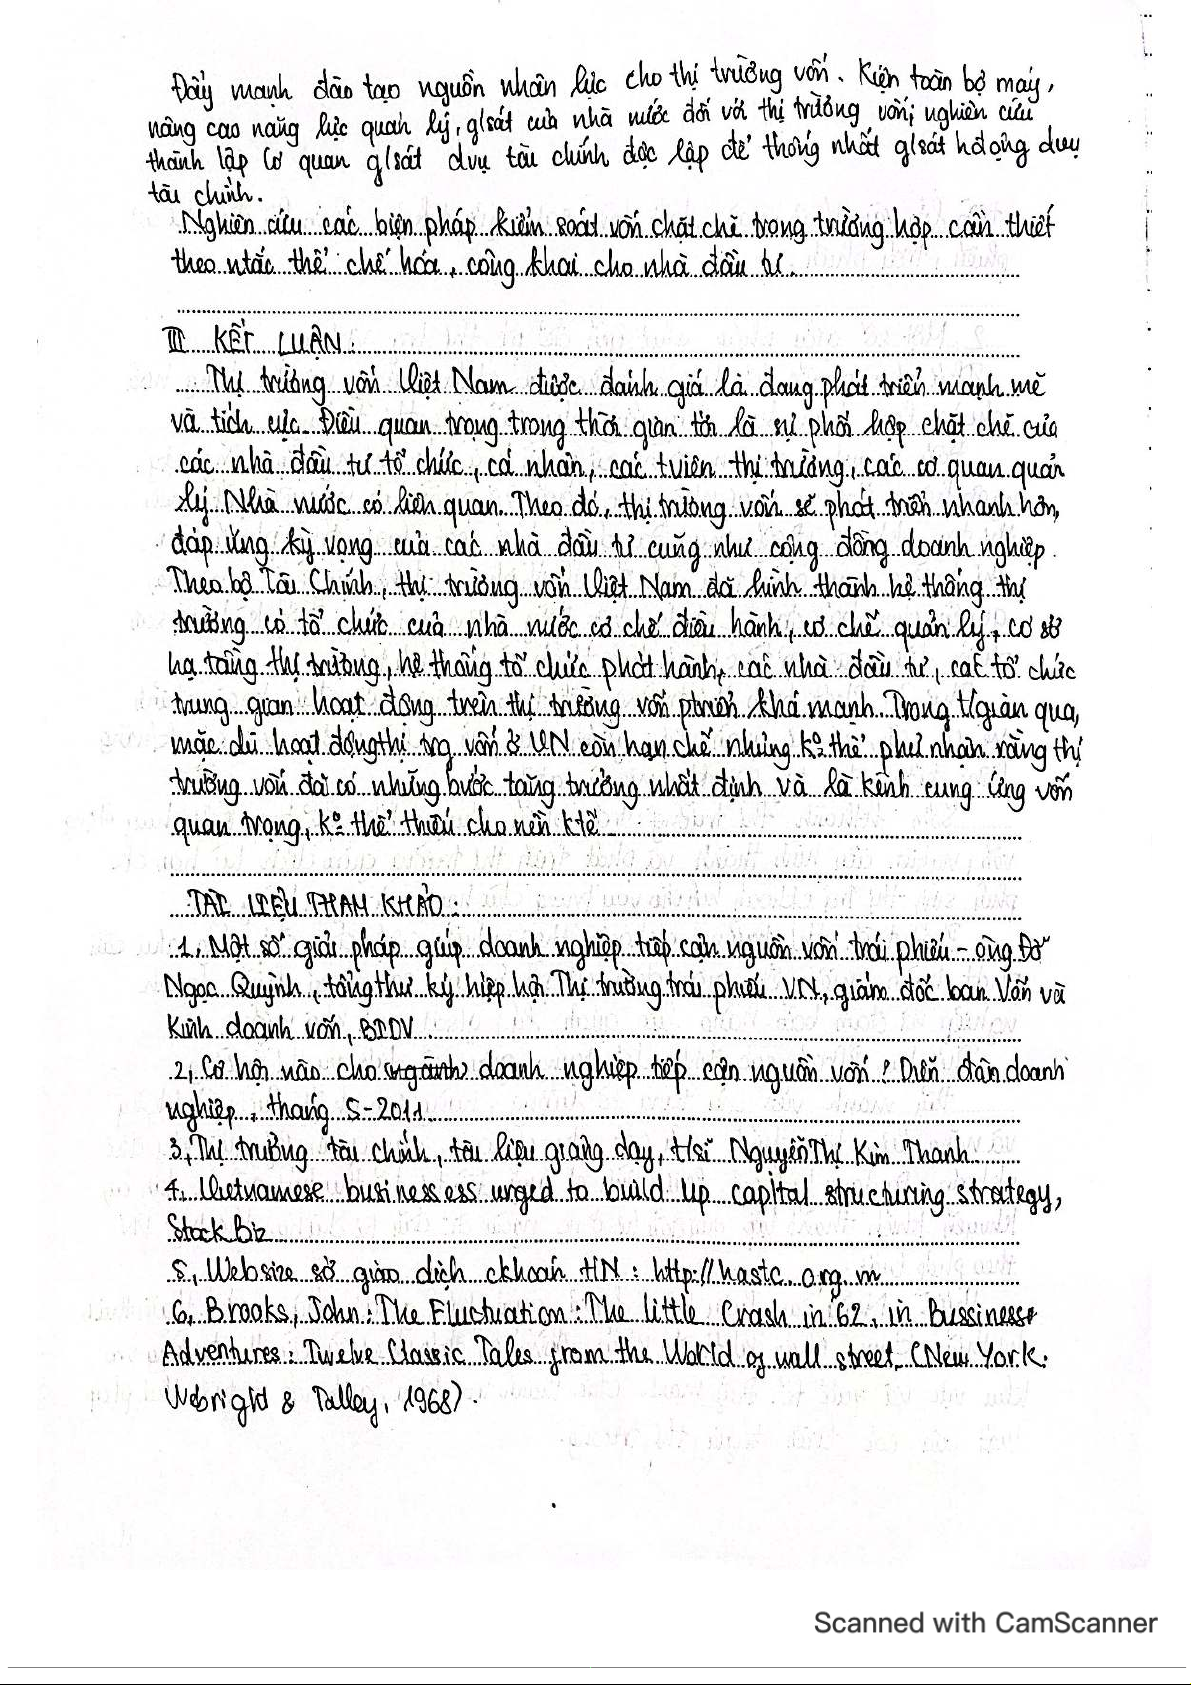 Đẩy mạnh đào tạo nguồn nhân lực cho thị trường vốn. Kiện toàn bộ máy,
nâng cao năng lực quản lý, g/sát của nhà nước đối với thị trường vốn; nghiên cứu
thành lập cơ quan g/sát dvụ tài chính độc lập để thống nhất g/sát hđộng dvụ
tài chính.
Nghiên cứu các biện pháp kiểm soát vốn chặt chẽ trong trường hợp cần thiết
theo ntắc thể chế hóa, công khai cho nhà đầu tư.
III KẾT LUẬN:
Thị trường vốn Việt Nam được đánh giá là đang phát triển mạnh mẽ
và tích cực. Điều quan trọng trong thời gian tới là sự phối hợp chặt chẽ của
các nhà đầu tư tổ chức, cá nhân, các tviên thị trường, các cơ quan quản
lý Nhà nước có liên quan. Theo đó, thị trường vốn sẽ phát triển nhanh hơn,
đáp ứng kỳ vọng của các nhà đầu tư cũng như cộng đồng doanh nghiệp.
Theo bộ Tài Chính, thị trường vốn Việt Nam đã hình thành hệ thống thị
trường có tổ chức của nhà nước cơ chế điều hành, cơ chế quản lý, cơ sở
hạ tầng thị trường, hệ thống tổ chức phát hành, các nhà đầu tư, các tổ chức
trung gian hoạt động trên thị trường vốn ptriển khá mạnh. Trong t/gian qua,
mặc dù hoạt động thị trg vốn ở VN còn hạn chế nhưng ko thể phủ nhận rằng thị
trường vốn đã có những bước tăng trưởng nhất định và là kênh cung ứng vốn
quan trọng, ko thể thiếu cho nền ktế
TÀI LIỆU THAM KHẢO:
1, Một số giải pháp giúp doanh nghiệp tiếp cận nguồn vốn trái phiếu - ông Đỗ
Ngọc Quỳnh, tổng thư ký hiệp hội Thị trường trái phiếu VN, giám đốc ban Vốn và
Kinh doanh vốn, BIDV.
2, Cơ hội nào cho doanh nghiệp tiếp cận nguồn vốn? Diễn đàn doanh
nghiệp, tháng 5-2011.
3, Thị trường tài chính, tài liệu giảng dạy, Nguyễn Thị Kim Thanh
4, Vietnamese businesses urged to build up capital structuring strategy,
StockBiz
5, Website sở giao dịch ckhoán HN: http://hastc.org.vn
6, Brooks, John: The Fluctuation: The little Crash in '62, in Bussiness
Adventures: Twelve Classic Tales from the World of wall street. (New York:
Webright & Talley, 1968).
Scanned with CamScanner